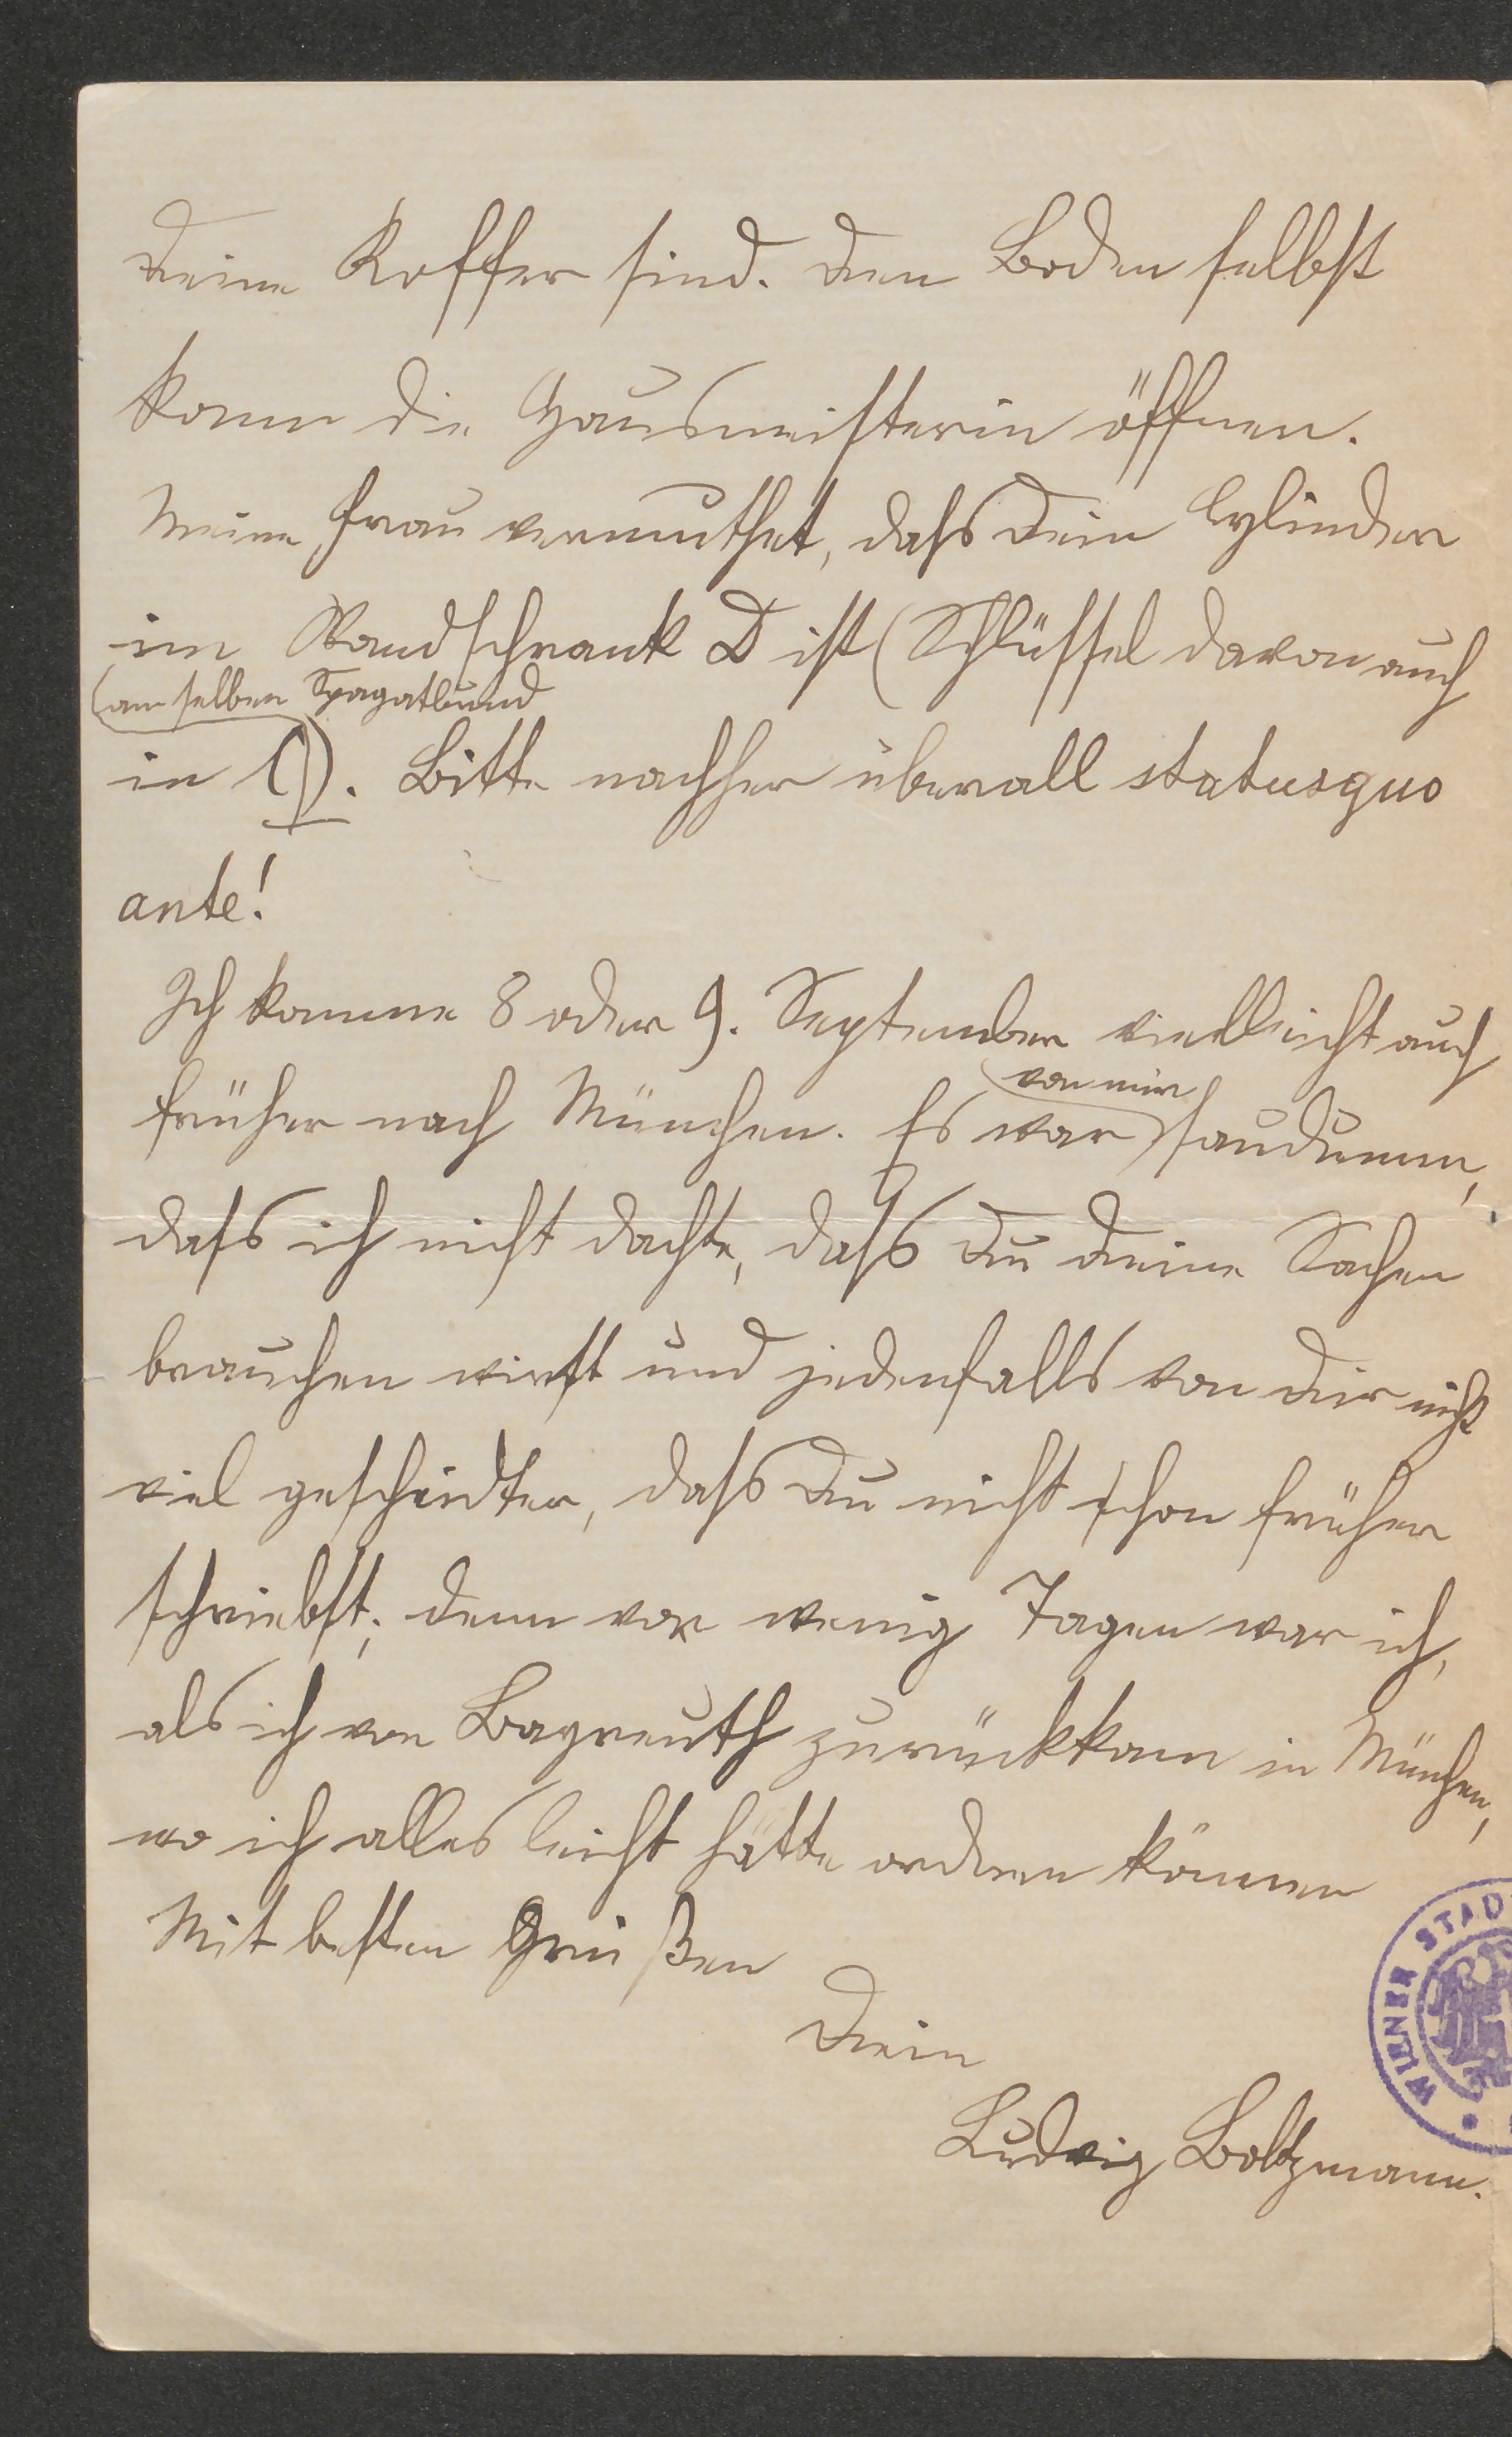 Deine Koffer sind. Den Boden selbst
kann die Hausmeisterin öffnen.
Meine Frau vermuthet, dass Dein Cylinder
im Wandschrank D ist (Schlüssel davon auch
(am selben Spagatbund
in C)). Bitte nachher überall statusquo
ante!
Ich komme 8 oder 9. September vielleicht auch
von mir
früher nach München. Es war saudumm,
dass ich nicht dachte, dass Du Deine Sachen
brauchen wirst und jedenfalls von Dir nicht
viel gescheidter, dass Du nicht schon früher
schriebst; denn vor wenig Tagen war ich,
als ich von Bayreuth zurückkam in München,
wo ich alles leicht hätte ordnen können
Mit besten Grüßen
Dein
Ludwig Boltzmann.
WIENER STAD